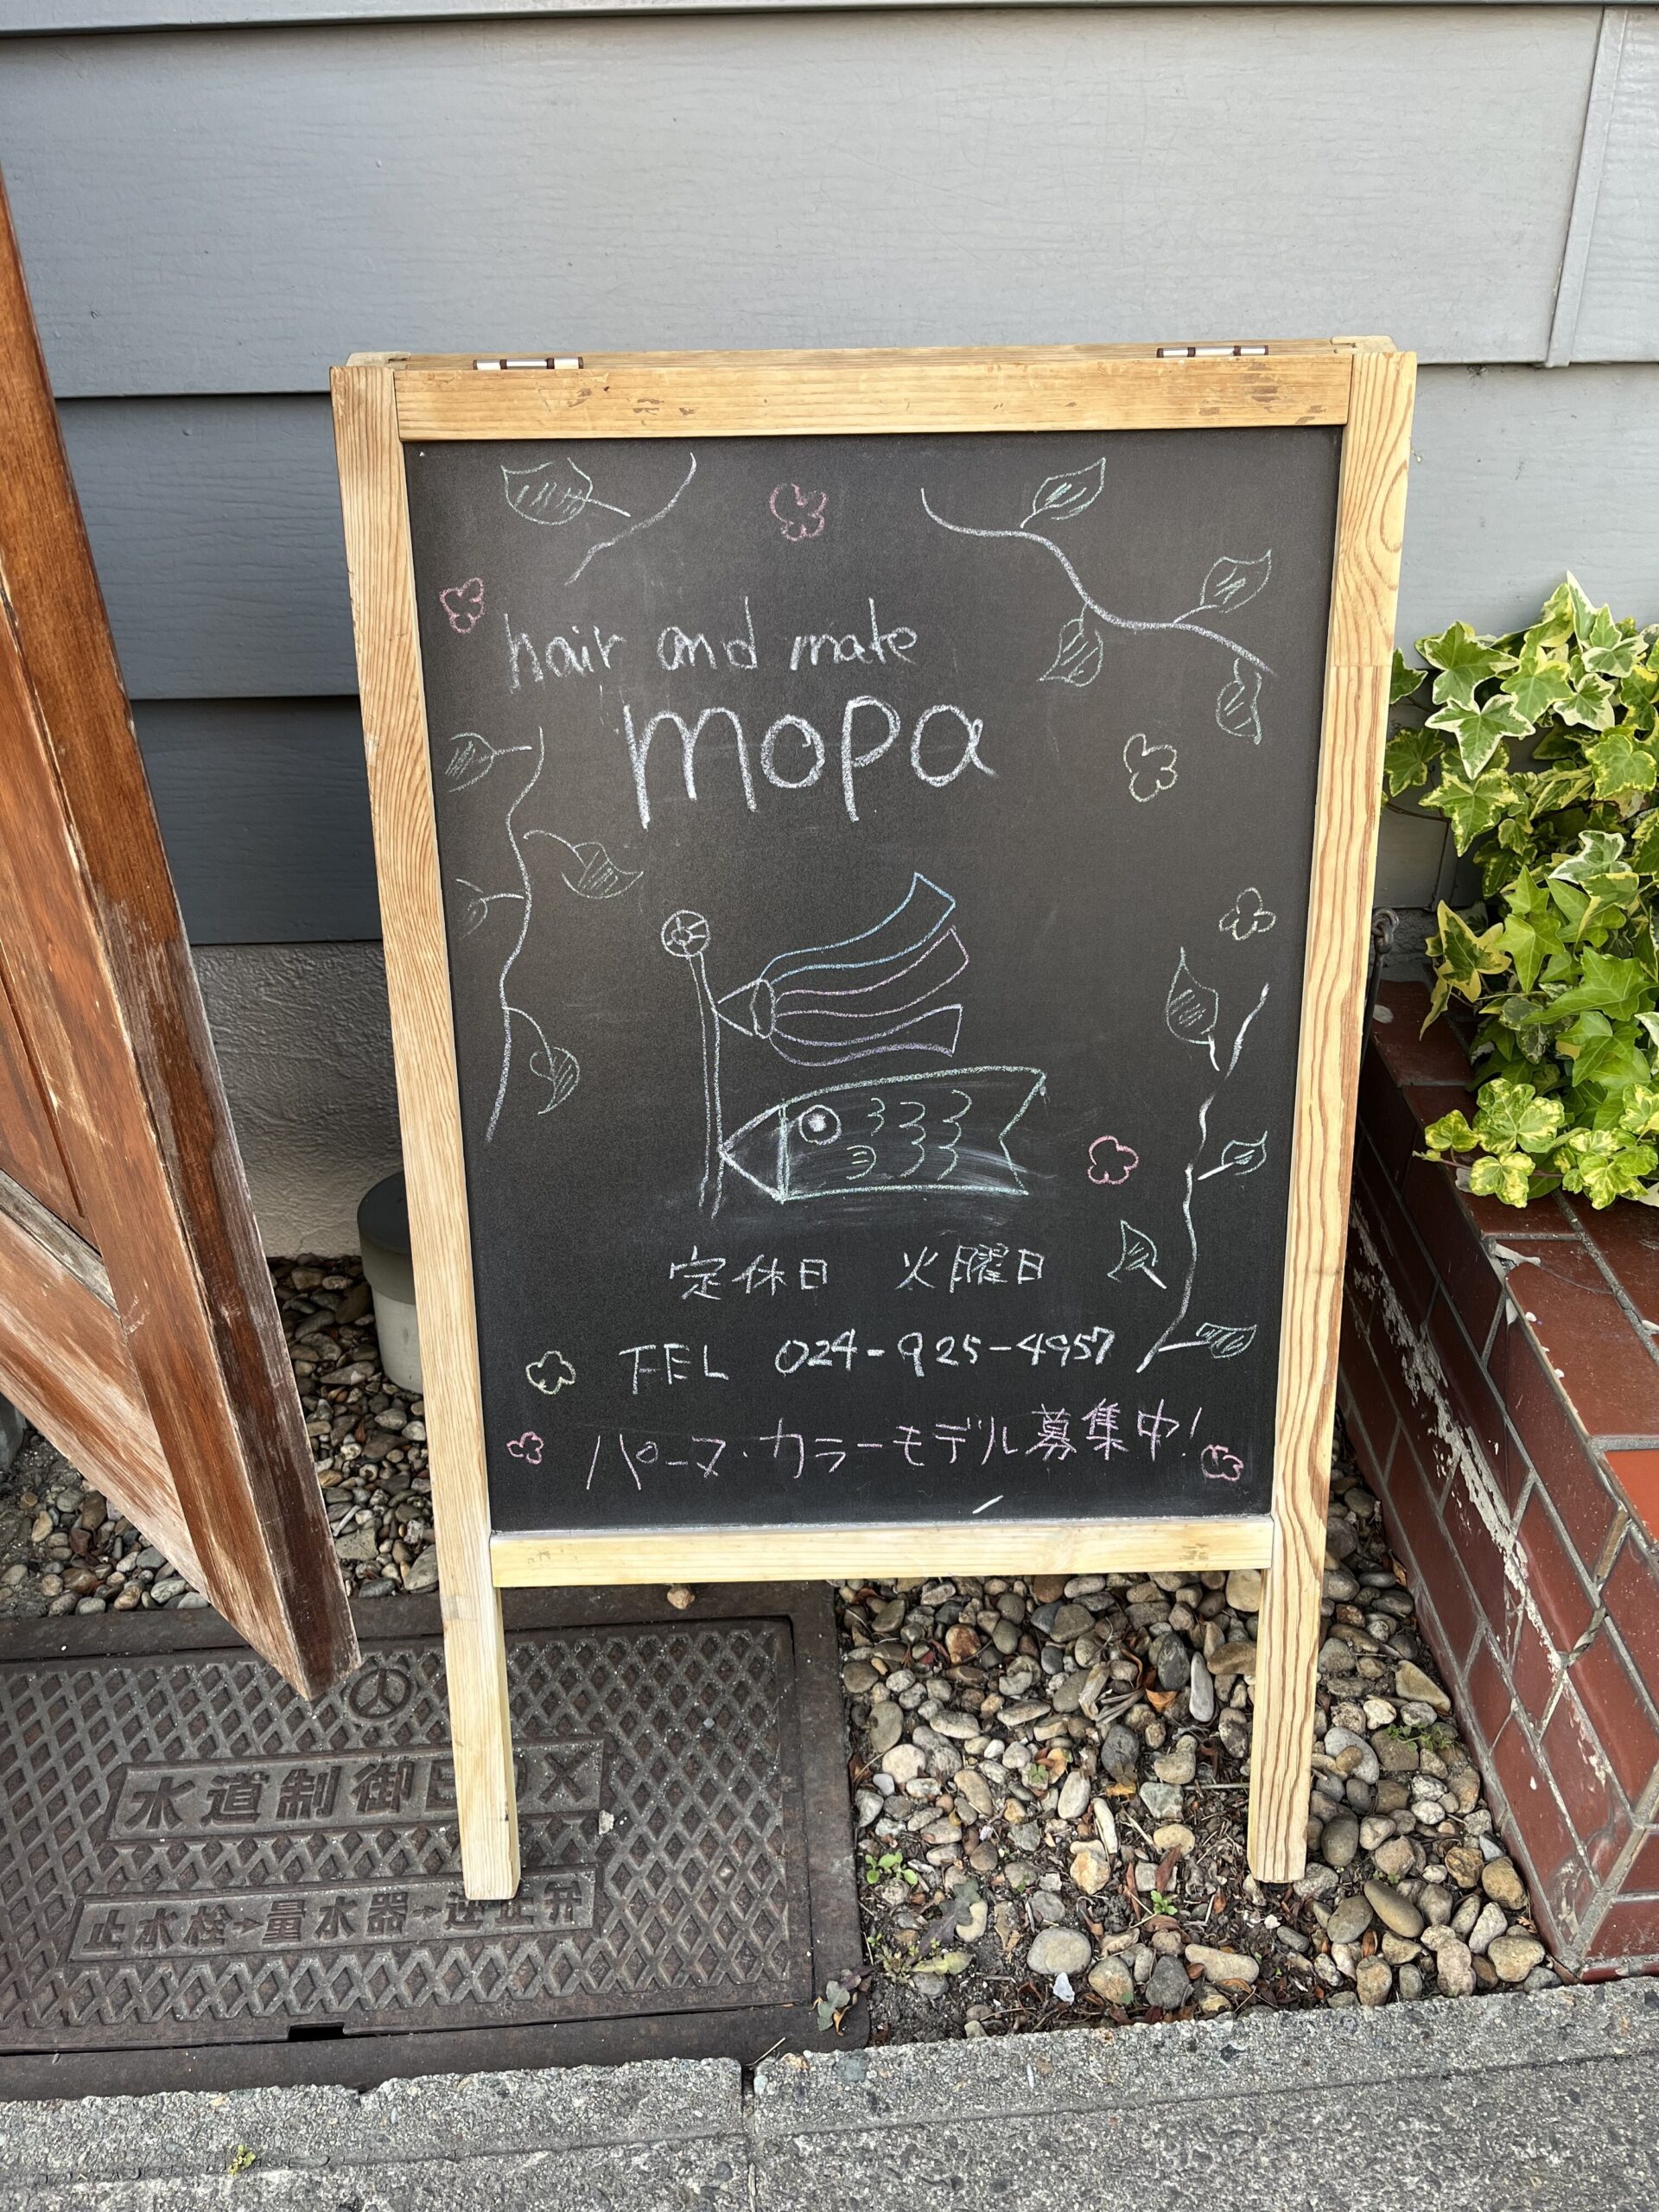 hair and mate
mopa
定休日 火曜日
TEL 024-925-4957
パーマ・カラーモデル募集中!
水道制御BOX
止水栓→量水器→逆止弁